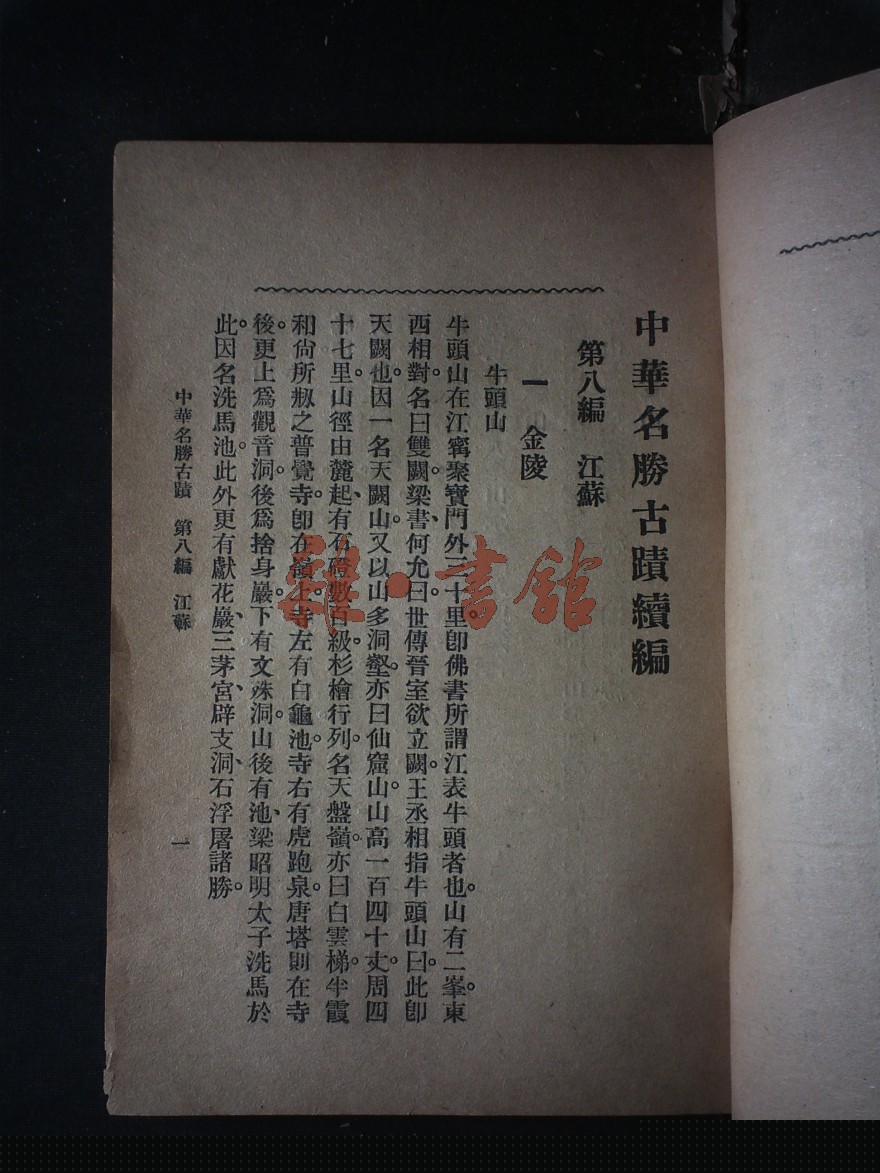 中華名勝古蹟續編
第八編　江蘇
一　金陵
牛頭山
牛頭山在江寗聚寶門外三十里。卽佛書所謂江表牛頭者也。山有二峯。東
西相對。名曰雙闕。梁書、何允曰。世傳晉室欲立闕。王丞相指牛頭山曰。此卽
天闕也。因一名天闕山。又以山多洞壑。亦曰仙窟山。山高一百四十丈。周四
十七里。山徑由麓起、有石磴數百級。杉檜行列。名天盤嶺。亦曰白雲梯。半霞
和尙所剏之普覺寺。卽在嶺上。寺左有白龜池。寺右有虎跑泉。唐塔則在寺
後。更上爲觀音洞。後爲捨身巖。下有文殊洞。山後有池、梁昭明太子洗馬於
此。因名洗馬池。此外更有獻花巖、三茅宮、辟支洞、石浮屠諸勝。
中華名勝古蹟　第八編　江蘇
一
雜·書館